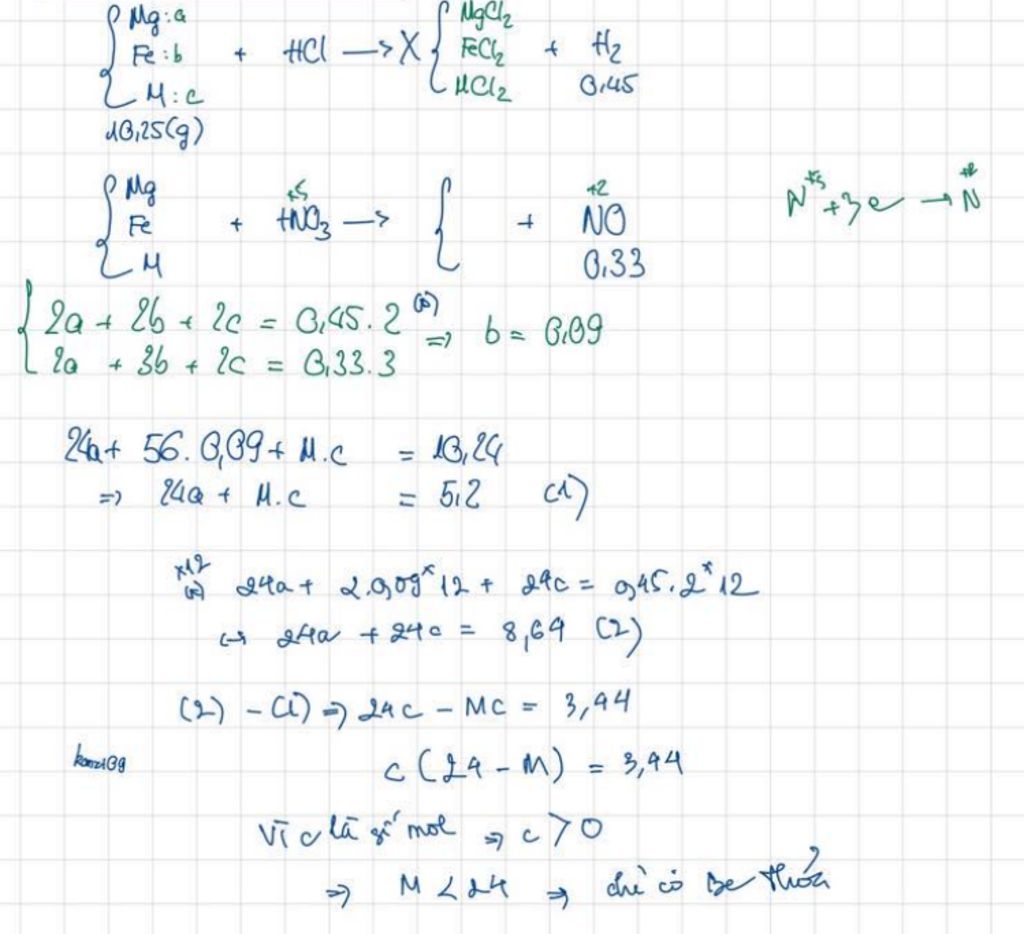 Mg: a
Fe: b + HCl → X { MgCl2 FeCl2 MCl2 + H2
M: c 0,45
10,25(g)
Mg
Fe + HNO3 → { + NO
M 0,33
+5 +2
N+5 + 3e → N+2
2a + 2b + 2c = 0,45.2 (*)
⇒ b = 0,09
2a + 3b + 2c = 0,33.3
24a + 56.0,09 + M.c = 10,24
⇒ 24a + M.c = 5,2 (1)
x12
(*) 24a + 2.0,09*12 + 24c = 0,45.2*12
↔ 24a + 24c = 8,64 (2)
(2) - (1) ⇒ 24c - Mc = 3,44
c (24 - M) = 3,44
Vì c là số mol ⇒ c > 0
⇒ M < 24 ⇒ chỉ có Be thỏa